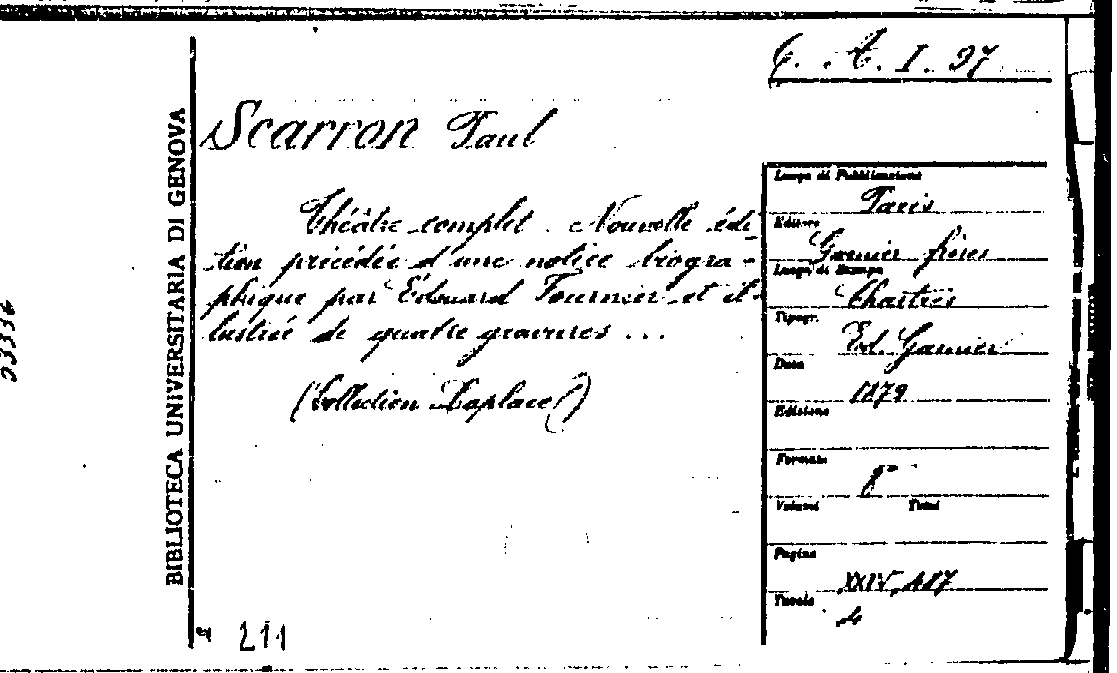 A. I. 97
Scarron Paul
Théâtre complet. Nouvelle édi-
tion précédée d'une notice biogra-
phique par Édouard Fournier et il-
lustrée de quatre gravures ...
(Collection Laplace)
BIBLIOTECA UNIVERSITARIA DI GENOVA
Luogo di Pubblicazione
Paris
Editore
Garnier frères
Luogo di Stampa
Chartres
Tipogr.
Ed. Garnier
Data
1879
Edizione
Formato
8°
Volumi Tomi
Pagine
XXIV, 487
Tavole
4
211